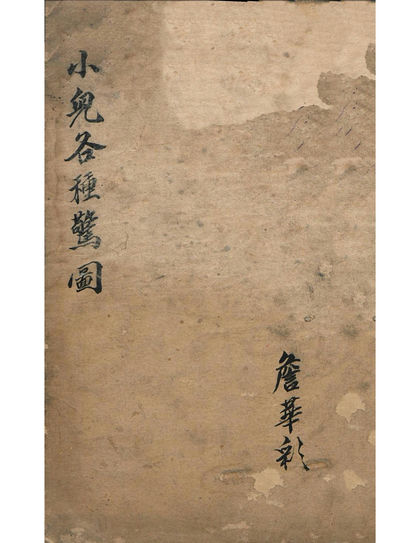 小兒各種驚圖
詹華彩